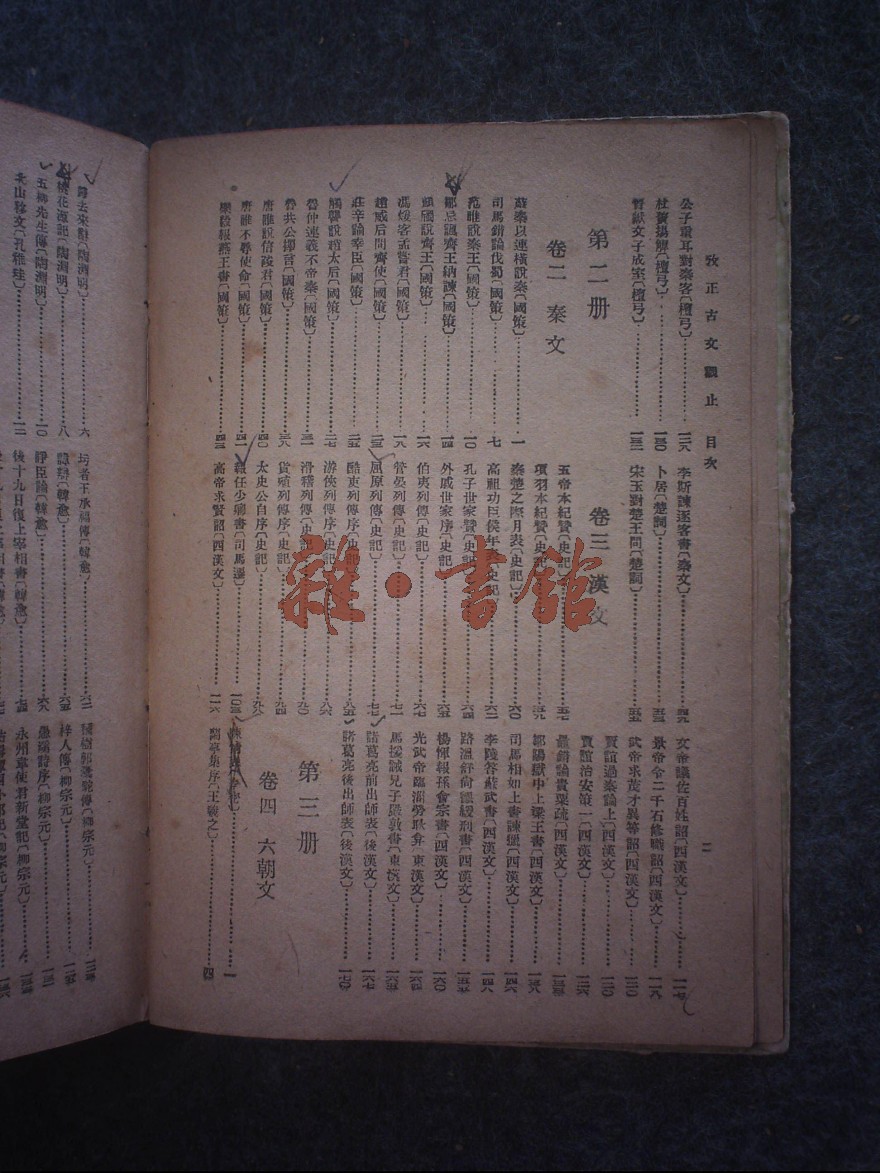 攷正古文觀止 目次
二
公子重耳對秦客〔檀弓〕 一二八
杜蕢揚觶〔檀弓〕 一三〇
晉獻文子成室〔檀弓〕 一三二
第二册
卷二 秦文
蘇秦以連橫說秦〔國策〕 一
司馬錯論伐蜀〔國策〕 七
范雎說秦王〔國策〕 一〇
鄒忌諷齊王納諫〔國策〕 一四
顏斶說齊王〔國策〕 一六
馮煖客孟嘗君〔國策〕 一八
趙威后問齊使〔國策〕 二三
莊辛論幸臣〔國策〕 二五
觸讋說趙太后〔國策〕 二七
魯仲連義不帝秦〔國策〕 三一
魯共公擇言〔國策〕 三八
唐雎說信陵君〔國策〕 四〇
唐雎不辱使命〔國策〕 四一
樂毅報燕王書〔國策〕 四三
李斯諫逐客書〔秦文〕 四九
卜居〔楚詞〕 五三
宋玉對楚王問〔楚詞〕 五五
卷三 漢文
五帝本紀贊〔史記〕 五七
項羽本紀贊〔史記〕 五九
秦楚之際月表〔史記〕 六〇
高祖功臣侯年表〔史記〕
孔子世家贊〔史記〕
外戚世家序〔史記〕 六五
伯夷列傳〔史記〕 六七
管晏列傳〔史記〕 七一
屈原列傳〔史記〕 七七
酷吏列傳序〔史記〕 八五
游俠列傳序〔史記〕 八六
滑稽列傳〔史記〕 九〇
貨殖列傳序〔史記〕 九四
太史公自序〔史記〕 九八
報任少卿書〔司馬遷〕 一〇三
高帝求賢詔〔西漢文〕 一一六
文帝議佐百姓詔〔西漢文〕 一一七
景帝令二千石修職詔〔西漢文〕 一一九
武帝求茂才異等詔〔西漢文〕 一二〇
賈誼過秦論上〔西漢文〕 一二〇
賈誼治安策一〔西漢文〕 一二六
鼂錯論貴粟疏〔西漢文〕 一三三
鄒陽獄中上梁王書〔西漢文〕 一三八
司馬相如上書諫獵〔西漢文〕 一四六
李陵答蘇武書〔西漢文〕 一四八
路溫舒尚德緩刑書〔西漢文〕 一五五
楊惲報孫會宗書〔西漢文〕 一六〇
光武帝臨淄勞耿弇〔東漢文〕 一六四
馬援誡兄子嚴敦書〔東漢文〕 一六五
諸葛亮前出師表〔後漢文〕 一六七
諸葛亮後出師表〔後漢文〕 一七〇
第三册
卷四 六朝文
陳情表 一
蘭亭集序〔王羲之〕 四
歸去來辭〔陶淵明〕 六
桃花源記〔陶淵明〕 八
五柳先生傳〔陶淵明〕 一〇
北山移文〔孔稚珪〕 一二
圬者王承福傳〔韓愈〕 六二
諱辯〔韓愈〕 六五
諍臣論〔韓愈〕 六八
後十九日復上宰相書〔韓愈〕 七四
種樹郭橐駝傳〔柳宗元〕
梓人傳〔柳宗元〕
愚溪詩序〔柳宗元〕
永州韋使君新堂記〔柳宗元〕
雜·書館